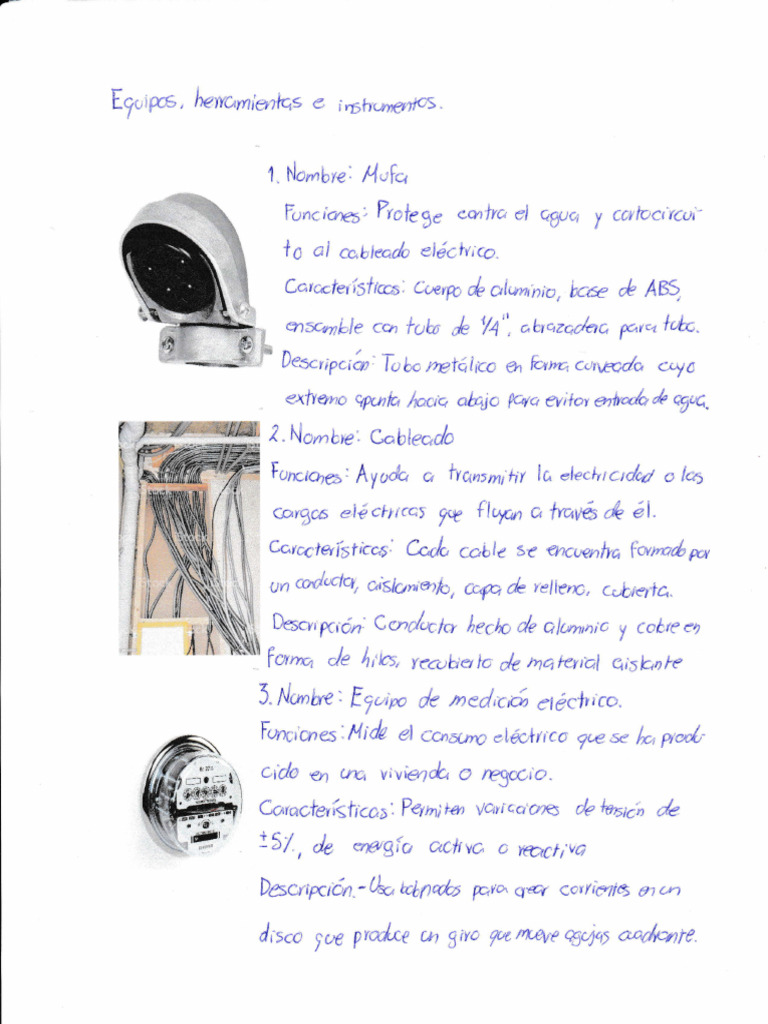 Equipos, herramientas e instrumentos.
1. Nombre: Mufa
Funciones: Protege contra el agua y cortocircui-
to al cableado eléctrico.
Características: Cuerpo de aluminio, base de ABS,
ensamble con tubo de 1/4", abrazadera para tubo.
Descripción: Tubo metálico en forma curveada cuyo
extremo apunta hacia abajo para evitar entrada de agua.
2. Nombre: Cableado
Funciones: Ayuda a transmitir la electricidad o las
cargas eléctricas que fluyan a través de él.
Características: Cada cable se encuentra formado por
un conductor, aislamiento, capa de relleno, cubierta.
Descripción: Conductor hecho de aluminio y cobre en
forma de hilos, recubierto de material aislante
3. Nombre: Equipo de medición eléctrico.
Funciones: Mide el consumo eléctrico que se ha produ-
cido en una vivienda o negocio.
Características: Permiten variaciones de tensión de
±5%, de energía activa o reactiva
Descripción.- Usa bobinados para crear corrientes en un
disco que produce un giro que mueve agujas cuadrante.